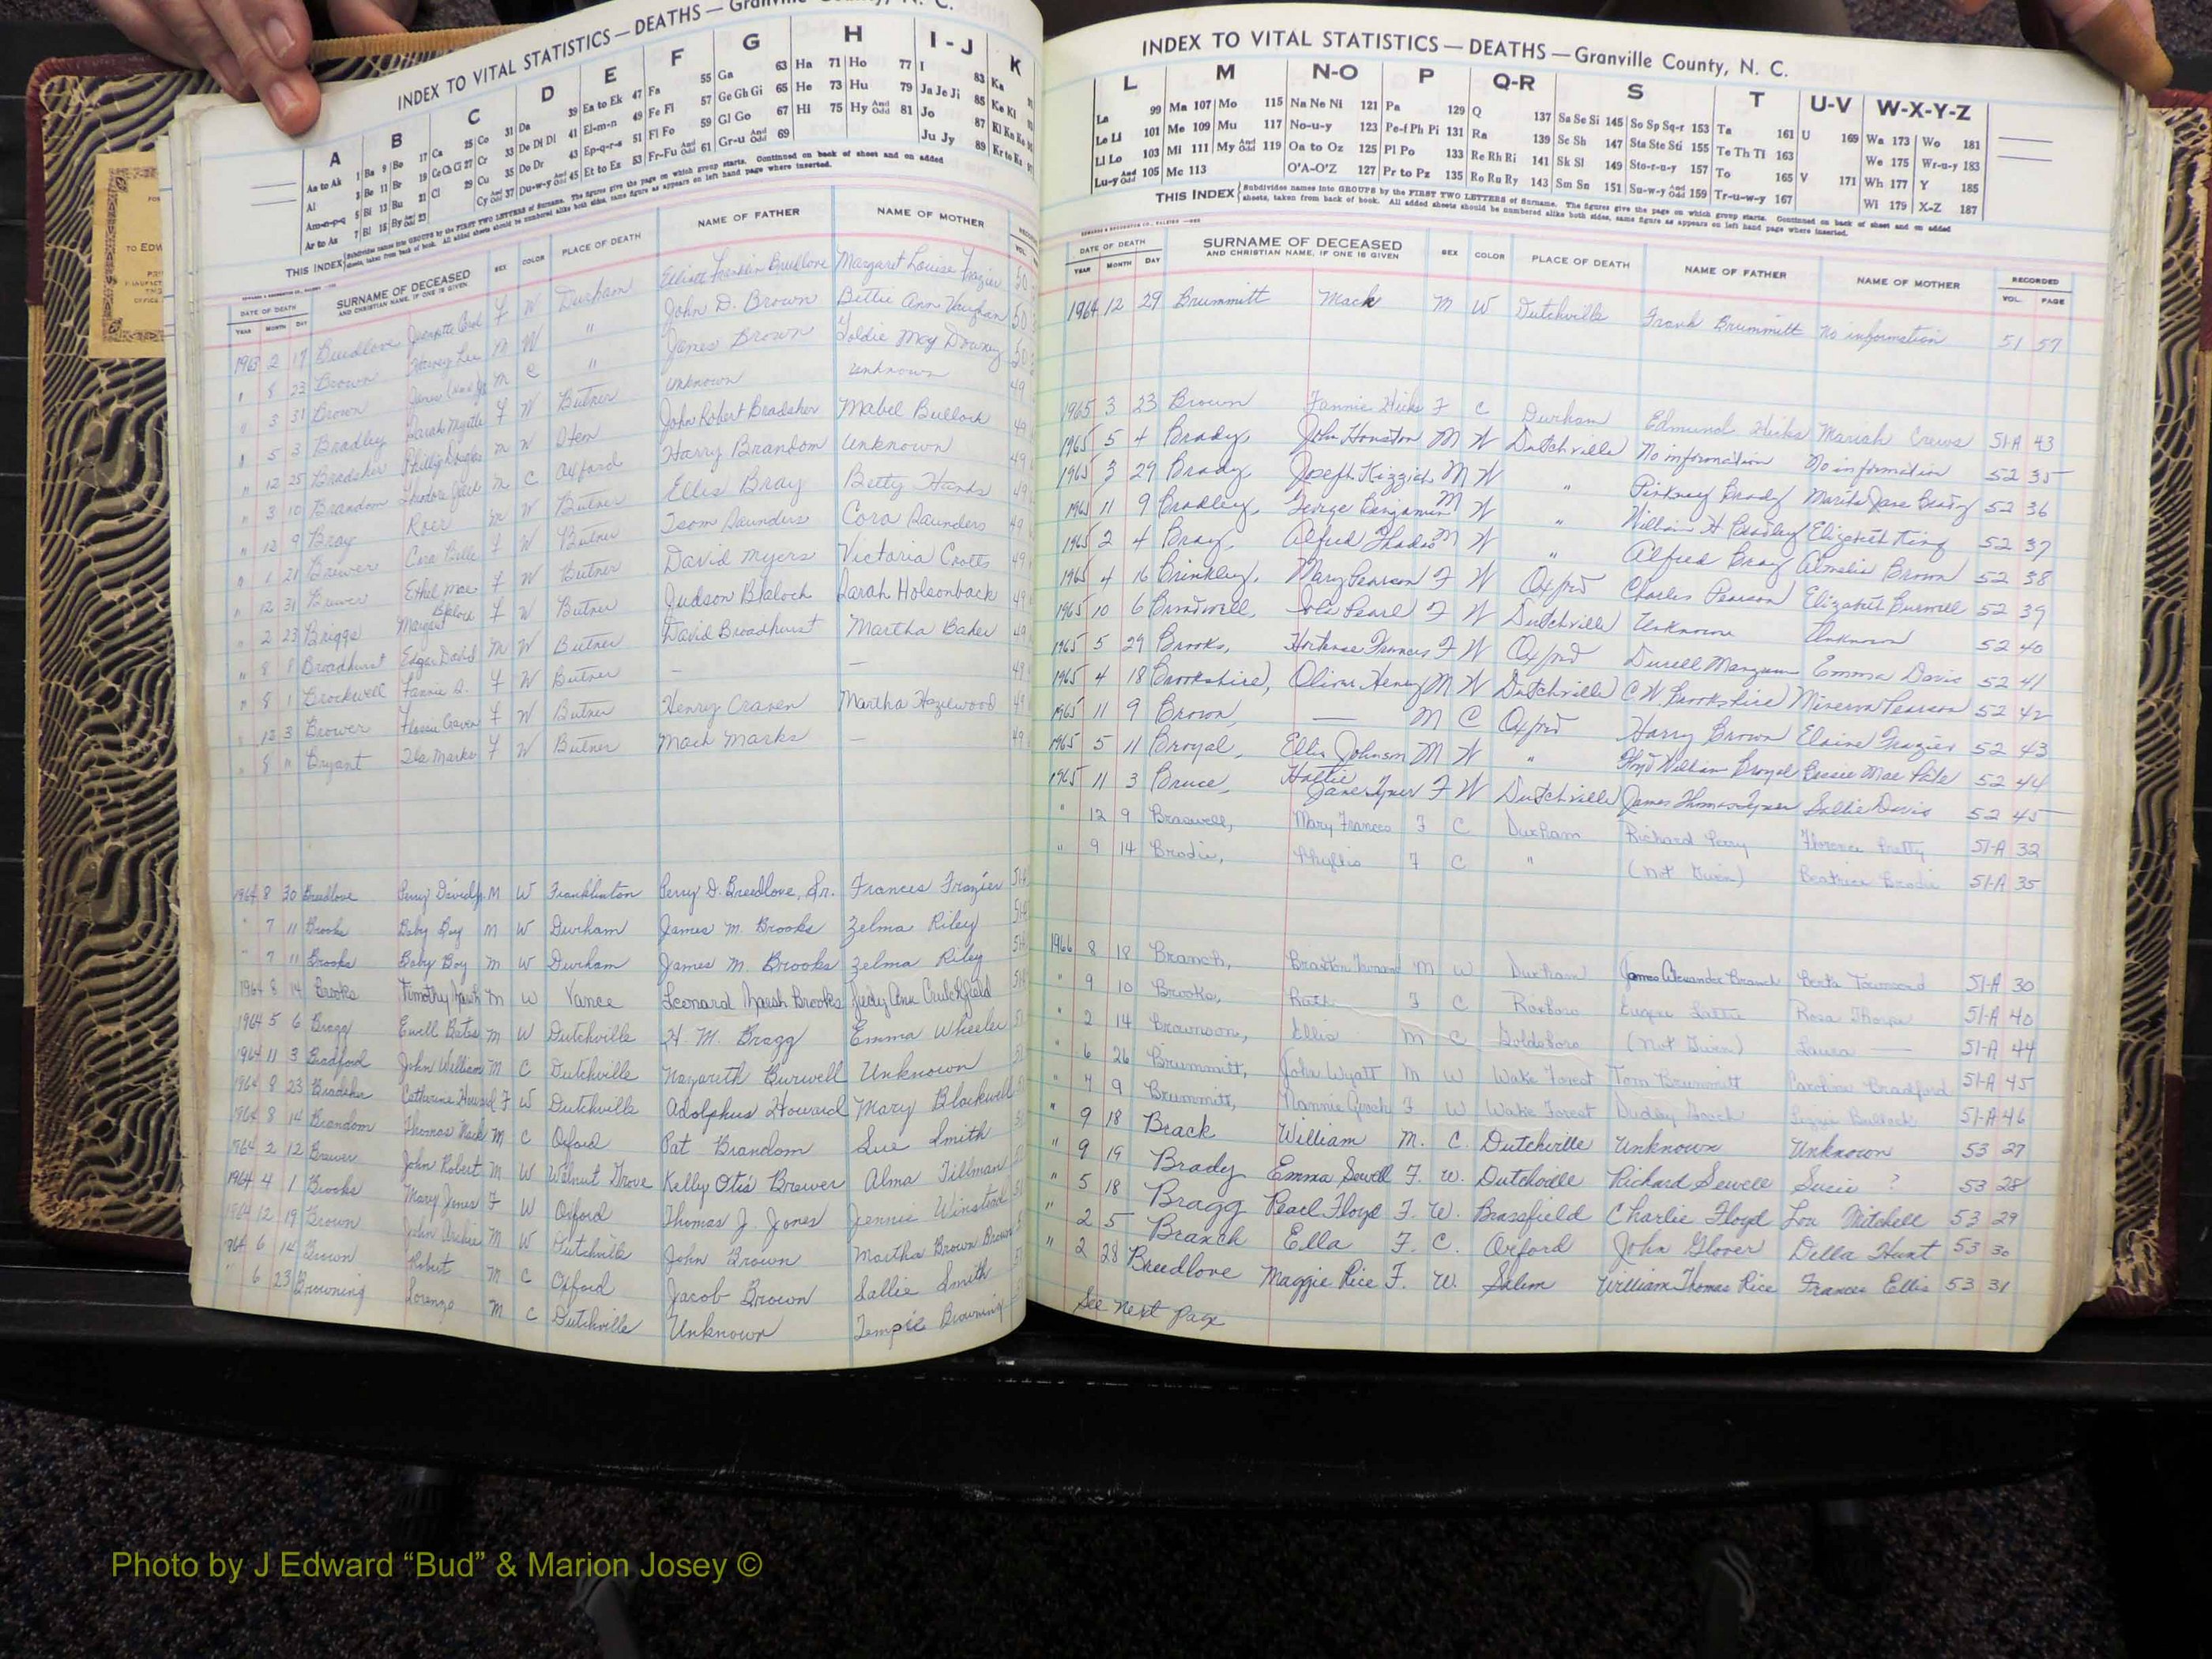 INDEX TO VITAL STATISTICS — DEATHS — Granville County, N. C.
A B C D E F G H I-J K
Aa to Ak 1 Ba 9 Bo 17 Ca 25 Co 31 Da 39 Ea to Ek 47 Fa 55 Ga 63 Ha 71 Ho 77 I 83 Ka
Al 3 Be 11 Br 19 Ce Ch Ci 27 Cr 33 De Di Dl 41 El-m-n 49 Fe Fi 57 Ge Gh Gi 65 He 73 Hu 79 Ja Je Ji 85 Ke Kl
Am-n-p-q 5 Bi 13 Bu 21 Cl 29 Cu 35 Do Dr 43 Ep-q-r-s 51 Fl Fo 59 Gl Go 67 Hi 75 Hy And Odd 81 Jo 87
Ar to Az 7 Bl 15 By And Odd 23 Cy And Odd 37 Du-w-y And Odd 45 Et to Ez 53 Fr-Fu And Odd 61 Gr-u And Odd 69 Ju Jy 89
THIS INDEX Subdivides names into GROUPS by the FIRST TWO LETTERS of Surname. The figures give the page on which group starts. Continued on back of sheet and on added
sheets, taken from back of book. All added sheets should be numbered alike both sides, same figure as appears on left hand page where inserted.
DATE OF DEATH SURNAME OF DECEASED SEX COLOR PLACE OF DEATH NAME OF FATHER NAME OF MOTHER
YEAR MONTH DAY AND CHRISTIAN NAME, IF ONE IS GIVEN VOL.
1963 2 17 Breedlove Jeanette Carol F W Durham Elliott Franklin Breedlove Margaret Louise Frazier 50
" 8 23 Brown Harvey Lee M W " John D. Brown Bettie Ann Vaughan 50
" 3 31 Brown James M C " James Brown Goldie May Downey 50
" 5 3 Bradley Sarah Myrtle F W Butner unknown unknown 49
" 12 25 Bradsher Phillip Douglas M W Stem John Robert Bradsher Mabel Bullock 49
" 3 10 Brandon Theodore Jack M C Oxford Harry Brandom Unknown 49
" 12 9 Bray Roer M W Butner Ellis Bray Betty Hanks 49
" 1 21 Brewer Cora Belle F W Butner Isom Saunders Cora Saunders 49
" 12 31 Brewer Ethel Mae F W Butner David Myers Victoria Crotts 49
" 2 23 Briggs Margaret Baloch F W Butner Judson Blaloch Sarah Holsonback 49
" 8 8 Broadhurst Edgar David M W Butner David Broadhurst Martha Baker 49
" 8 1 Brockwell Fannie D. F W Butner — — 49
" 12 3 Brower Flossie Craven F W Butner Henry Craven Martha Hazelwood 49
" 8 11 Bryant Ila Marks F W Butner Mach Marks — 49
1964 8 30 Breedlove Perry David Jr. M W Franklinton Perry D. Breedlove, Sr. Frances Frazier
" 7 11 Brooks Baby Boy M W Durham James M. Brooks Zelma Riley
" 7 11 Brooks Baby Boy M W Durham James M. Brooks Zelma Riley
1964 8 14 Brooks Timothy Marsh M W Vance Leonard Marsh Brooks Judy Ann Crutchfield
1964 5 6 Bragg Ewell Bates M W Dutchville H. M. Bragg Emma Wheeler
1964 11 3 Bradford John William M C Dutchville Nazareth Burwell Unknown
1964 8 23 Bradsher Catherine Howard F W Dutchville Adolphus Howard Mary Blackwell
1964 8 14 Brandom Thomas Mack M C Oxford Pat Brandom Sue Smith
1964 2 12 Brewer John Robert M W Walnut Grove Kelly Otis Brewer Alma Tillman
1964 4 1 Brooks Mary Jones F W Oxford Thomas J. Jones Jennie Winston
1964 12 19 Brown John Archie M W Dutchville John Brown Martha Brown Brown
1964 6 14 Brown Robert M C Oxford Jacob Brown Sallie Smith
" 6 23 Browning Lorenzo M C Dutchville Unknown Tempie Browning
INDEX TO VITAL STATISTICS — DEATHS — Granville County, N. C.
L M N-O P Q-R S T U-V W-X-Y-Z
La 99 Ma 107 Mo 115 Na Ne Ni 121 Pa 129 Q 137 Sa Se Si 145 So Sp Sq-r 153 Ta 161 U 169 Wa 173 Wo 181
Le Ll 101 Me 109 Mu 117 No-u-y 123 Pe-f Ph Pi 131 Ra 139 Sc Sh 147 Sta Ste Sti 155 Te Th Ti 163 We 175 Wr-u-y 183
Li Lo 103 Mi 111 My And Odd 119 Oa to Oz 125 Pl Po 133 Re Rh Ri 141 Sk Sl 149 Sto-r-u-y 157 To 165 V 171 Wh 177 Y 185
Lu-y And Odd 105 Mc 113 O'A-O'Z 127 Pr to Pz 135 Ro Ru Ry 143 Sm Sn 151 Su-w-y And Odd 159 Tr-u-w-y 167 Wi 179 X-Z 187
THIS INDEX Subdivides names into GROUPS by the FIRST TWO LETTERS of Surname. The figures give the page on which group starts. Continued on back of sheet and on added
sheets, taken from back of book. All added sheets should be numbered alike both sides, same figure as appears on left hand page where inserted.
DATE OF DEATH SURNAME OF DECEASED SEX COLOR PLACE OF DEATH NAME OF FATHER NAME OF MOTHER RECORDED
YEAR MONTH DAY AND CHRISTIAN NAME, IF ONE IS GIVEN VOL. PAGE
1964 12 29 Brummitt Mack M W Dutchville Frank Brummitt No information 51 57
1965 3 23 Brown Fannie Hicks F C Durham Edmund Hicks Mariah Crews 51-A 43
1965 5 4 Brady, John Houston M W Dutchville No information No information 52 35
1965 3 29 Brady Joseph Kizzich M W " Pinkney Brady Marilda Jane Brady 52 36
1965 11 9 Bradley, George Benjamin M W " William H Bradley Elizabeth King 52 37
1965 2 4 Bray, Alfred Thadas M W " Alfred Bray Almelia Brown 52 38
1965 4 16 Brinkley, Mary Pearson F W Oxford Charles Pearson Elizabeth Burwell 52 39
1965 10 6 Broadwell, Pearl F W Dutchville Unknown Unknown 52 40
1965 5 29 Brooks, Hortense Frances F W Oxford Durell Mangum Emma Davis 52 41
1965 4 18 Brookshire, Oliver Henry M W Dutchville C W Brookshire Minerva Pearson 52 42
1965 11 9 Brown, — M C Oxford Harry Brown Elaine Frazier 52 43
1965 5 11 Broyal, Ellis Johnson M W " Floyd William Broyal Bessie Mae Pate 52 44
1965 11 3 Bruce, Hattie Jane Tyner F W Dutchville James Thomas Tyner Sallie Davis 52 45
" 12 9 Braswell, Mary Frances F C Durham Richard Perry Florence Pretty 51-A 32
" 9 14 Brodie, Phyllis F C " (Not Given) Beatrice Brodie 51-A 35
1966 8 18 Branch, Braxton M W Durham James Alexander Branch Berta Townsend 51-A 30
" 9 10 Brooks, Ruth F C Roxboro Eugene Lattie Rosa Thorpe 51-A 40
" 2 14 Brownson, Ellis M C Goldsboro (Not Given) Laura — 51-A 44
" 6 26 Brummitt, John Wyatt M W Wake Forest Tom Brummitt Caroline Bradford 51-A 45
" 4 9 Brummitt, Nannie Gooch F W Wake Forest Dudley Gooch Lizzie Bullock 51-A 46
" 9 18 Brack William M. C. Dutchville Unknown Unknown 53 27
" 9 19 Brady Emma Sewell F. W. Dutchville Richard Sewell Susie ? 53 28
" 5 18 Bragg Pearl Floyd F. W. Brassfield Charlie Floyd Lou Mitchell 53 29
" 2 5 Branch Ella F. C. Oxford John Glover Della Hunt 53 30
" 2 28 Breedlove Maggie Rice F. W. Salem William Thomas Rice Frances Ellis 53 31
See next page
Photo by J Edward “Bud” & Marion Josey ©